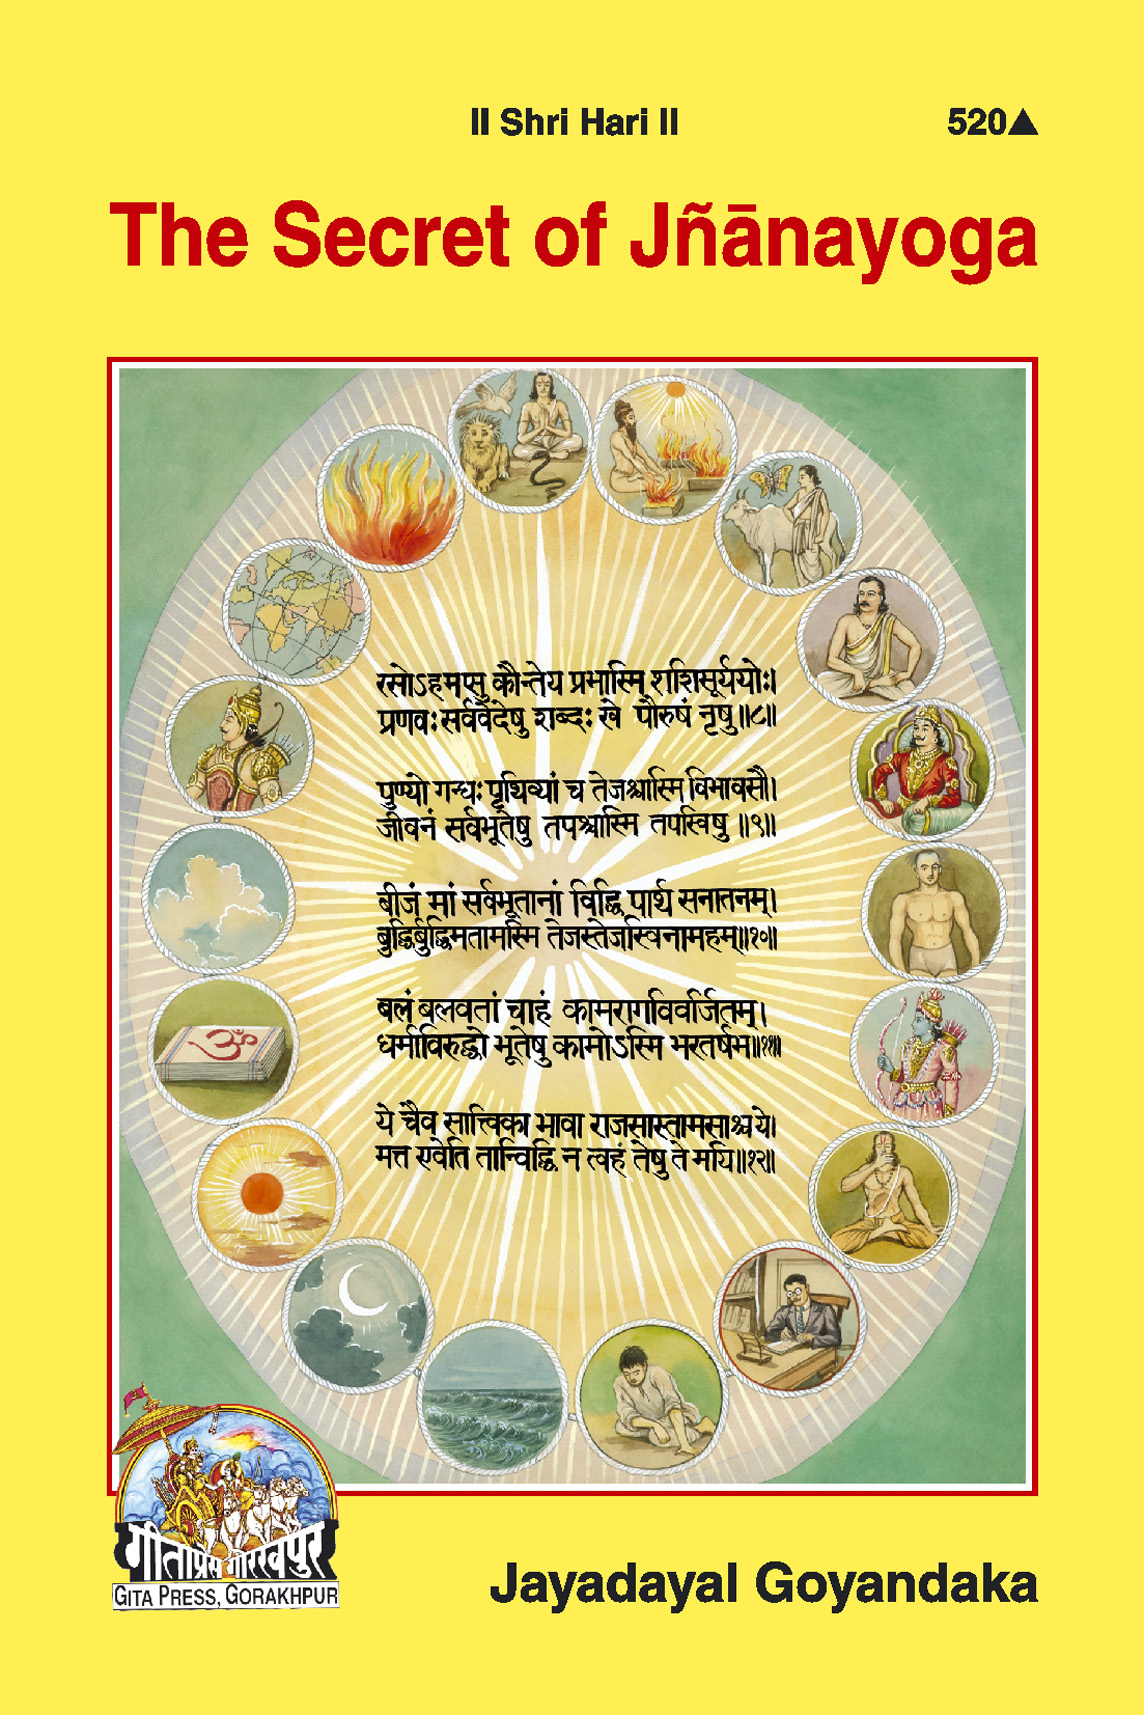 ॥ Shri Hari ॥ 520▲
The Secret of Jñānayoga
रसोऽहमप्सु कौन्तेय प्रभास्मि शशिसूर्ययोः।
प्रणवः सर्ववेदेषु शब्दः खे पौरुषं नृषु॥८॥
पुण्यो गन्धः पृथिव्यां च तेजश्चास्मि विभावसौ।
जीवनं सर्वभूतेषु तपश्चास्मि तपस्विषु॥९॥
बीजं मां सर्वभूतानां विद्धि पार्थ सनातनम्।
बुद्धिर्बुद्धिमतामस्मि तेजस्तेजस्विनामहम्॥१०॥
बलं बलवतां चाहं कामरागविवर्जितम्।
धर्माविरुद्धो भूतेषु कामोऽस्मि भरतर्षभ॥११॥
ये चैव सात्त्विका भावा राजसास्तामसाश्च ये।
मत्त एवेति तान्विद्धि न त्वहं तेषु ते मयि॥१२॥
ॐ
गीताप्रेस गोरखपुर
GITA PRESS, GORAKHPUR
Jayadayal Goyandaka